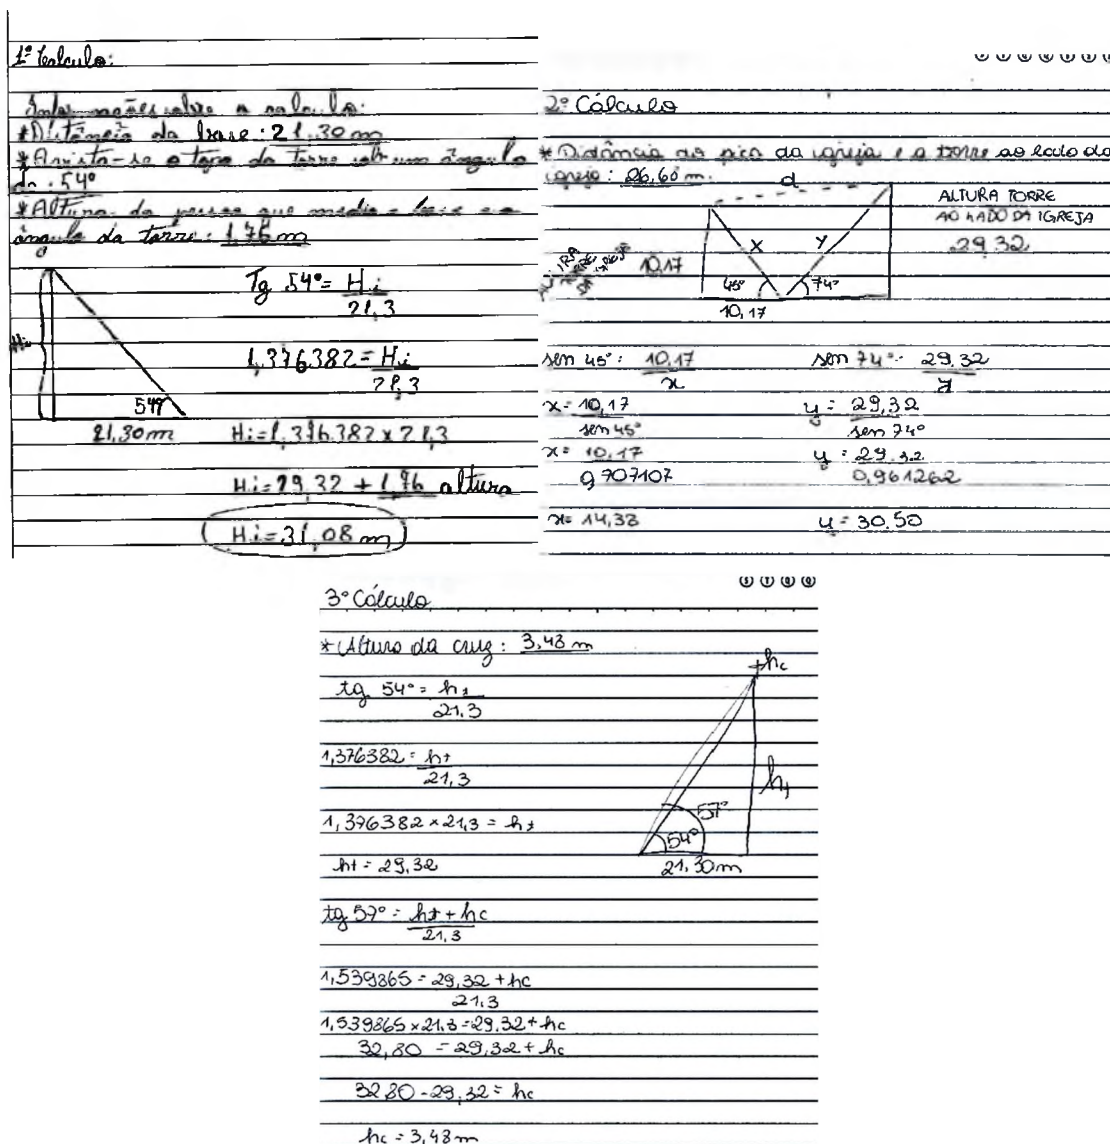 1º Calculo:
Informações sobre o calculo:
*Distância da base: 21,30 m
*Avista-se o topo da torre sob um ângulo
de: 54º
*Altura da pessoa que media a base e o
ângulo da torre: 1,76 m
Tg 54º = Hi
21,3
1,376382 = Hi
21,3
Hi
54º
21,30m
Hi=1,376382 x 21,3
Hi=29,32 + 1,76 altura
Hi=31,08 m
2º Cálculo
*Distância do pico da igreja e a torre ao lado da
igreja: 26,60 m.
d
ALTURA TORRE
AO LADO DA IGREJA
29,32
10,17
X
Y
45º
74º
10,17
sen 45º: 10,17
x
sen 74º: 29,32
y
x= 10,17
sen 45º
y = 29,32
sen 74º
x= 10,17
0,707107
y = 29,32
0,961262
x= 14,38
y = 30,50
3º Cálculo
*Altura da cruz: 3,48 m
hc
tg 54º = ht
21,3
1,376382 = ht
21,3
ht
57º
1,376382 x 21,3 = ht
54º
ht = 29,32
21,30m
tg 57º = ht + hc
21,3
1,539865 = 29,32 + hc
21,3
1,539865 x 21,3 = 29,32 + hc
32,80 = 29,32 + hc
32,80 - 29,32 = hc
hc = 3,48 m